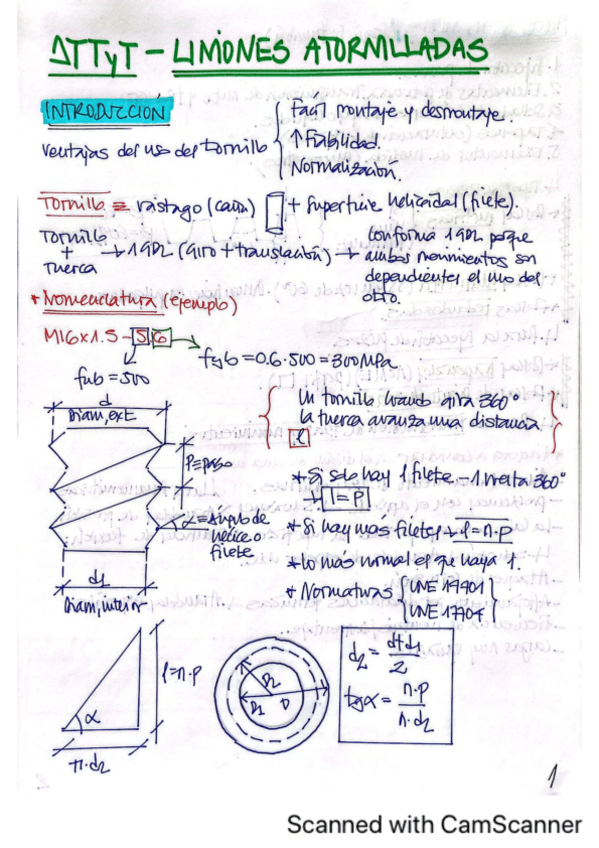 ΔTTyT – UNIONES ATORNILLADAS
INTRODUCCIÓN
Ventajas del uso del tornillo
Fácil montaje y desmontaje.
↑ Fiabilidad.
Normalización.
Tornillo ≡ vástago (caña) + superficie helicoidal (filete).
Tornillo + Tuerca → 1 GDL (Giro + translación) →
conforma 1 GDL porque
ambos movimientos son
dependientes el uno del
otro.
* Nomenclatura (ejemplo)
M16x1.5 – 5 6
fyb = 0.6·500 = 300 MPa
fub = 500
d
Diam, ext
P = paso
α = Ángulo de
hélice o
filete
d1
Diam, interior
Un tornillo cuando gira 360°
la tuerca avanza una distancia
l
* Si solo hay 1 filete – 1 vuelta 360°
l = P
* Si hay mas filetes → l = n·p
* Lo más normal el que haya 1.
* Normativas
UNE 17701
UNE 17704
l = n·p
α
π·d2
D2
D1
D
d2 = d+d1 / 2
tgα = n·p / π·d2
1
Scanned with CamScanner